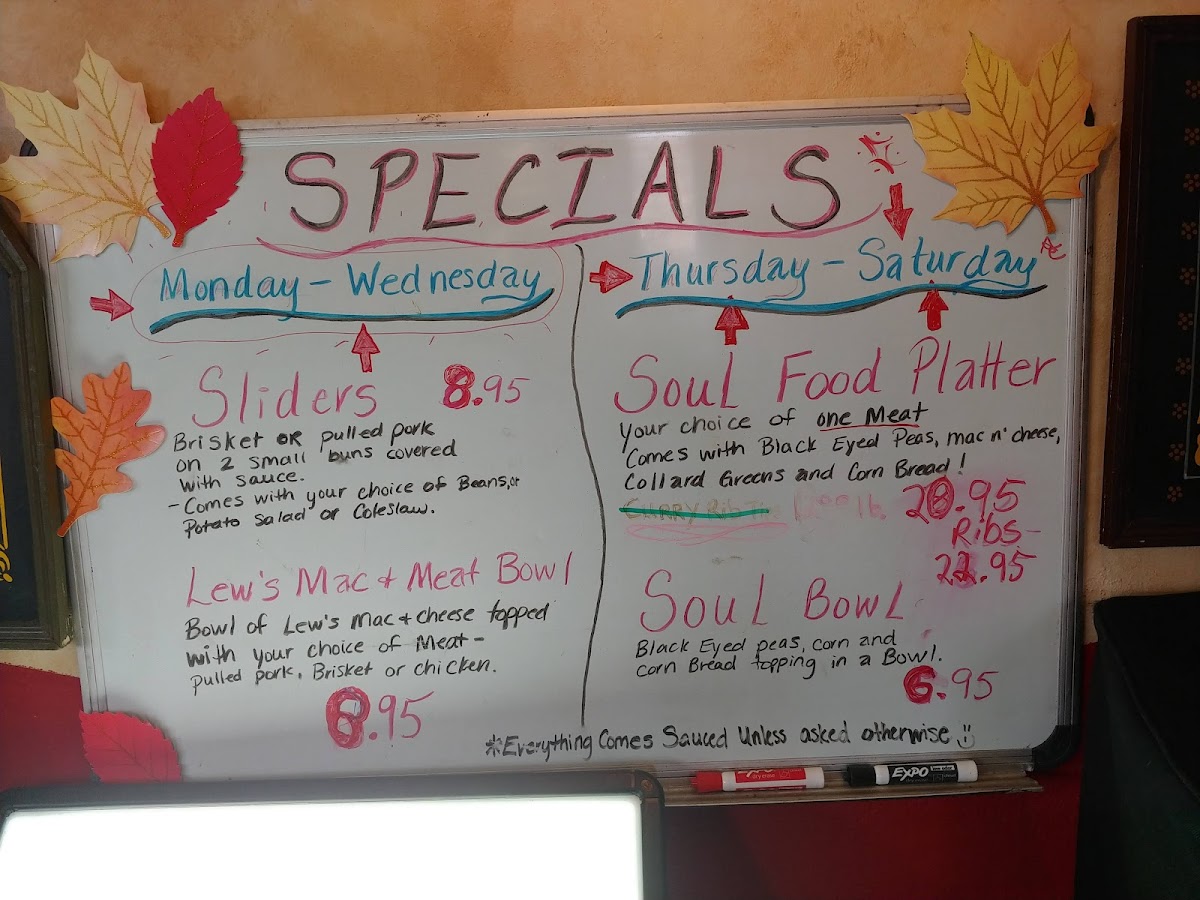 SPECIALS
Monday - Wednesday
Sliders 8.95
Brisket OR pulled pork
on 2 small buns covered
with sauce.
- Comes with your choice of Beans, or
Potato salad or Coleslaw.
Lew's Mac + Meat Bowl
Bowl of Lew's Mac + cheese topped
with your choice of Meat -
pulled pork, Brisket or chicken.
8.95
Thursday - Saturday
Soul Food Platter
your choice of one Meat
Comes with Black Eyed Peas, mac n' cheese,
Collard Greens and Corn Bread!
20.95
Ribs -
22.95
Soul Bowl
Black Eyed peas, corn and
corn Bread topping in a Bowl.
6.95
*Everything Comes Sauced Unless asked otherwise
EXPO
EXPO